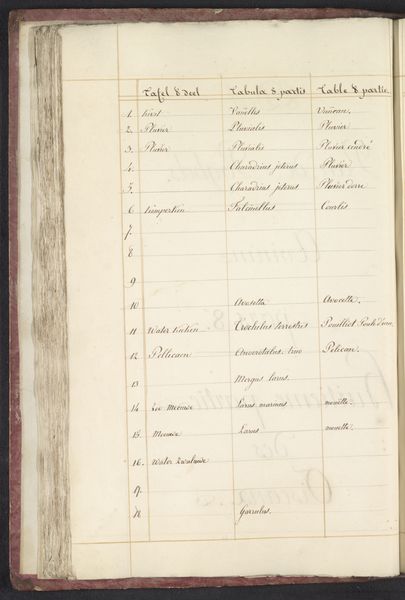 Tafel 8 deel Tabula 8 partis Table 8 partie
1. Kivit Vanellus Vanneau.
2. Pluvier Pluvialis Pluvier
3. Pluvier Pluvialis Pluvier cendré
4. Charadrius Pluvier
5. Charadrius Pluvier doré
6 Courlis
7.
8
9
10 Avosetta Avocette.
11 Water terrestris Poule d'eau.
12. Pellicaen Onocrotalus Pelican.
13 Mergus larus.
14 Zee Meeuwe Larus marinus mouëtte.
15. Meeuwe Larus mouette.
16. Water Zwaluwe
17.
18 Garrulus.